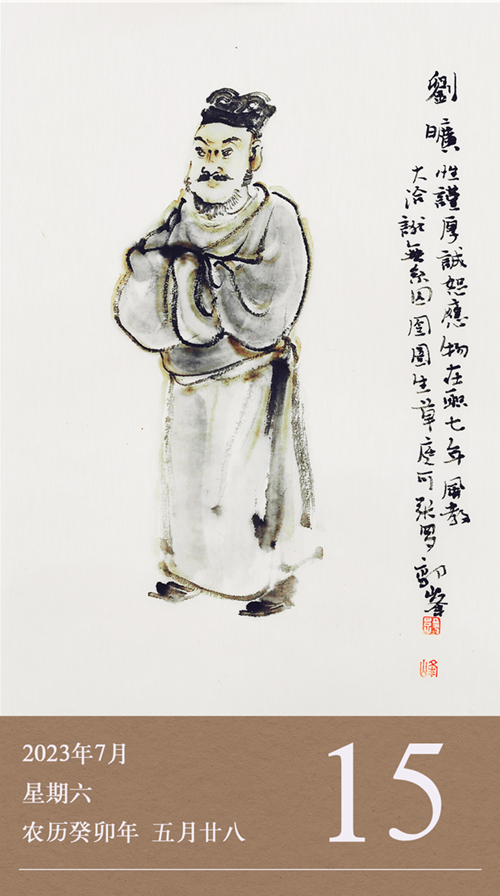 劉曠
性謹厚誠恕應物在职七年風教
大洽獄無系囚囹圄生草庭可张罗
2023年7月
星期六
农历癸卯年 五月廿八
15